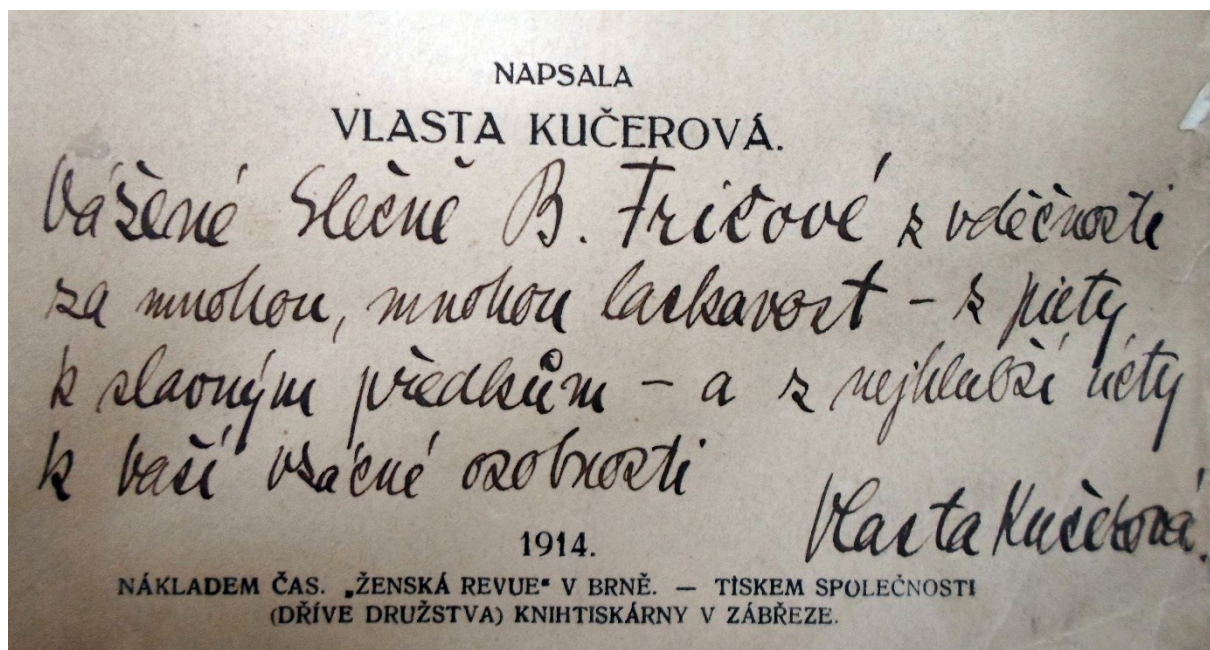 NAPSALA
VLASTA KUČEROVÁ.
Vážené Slečně B. Fričové z vděčnosti
za mnohou, mnohou laskavost – z piety
k slavným předkům – a z nejhlubší úcty
k vaší vzácné osobnosti
Vlasta Kučerová.
1914.
NÁKLADEM ČAS. „ŽENSKÁ REVUE“ V BRNĚ. — TISKEM SPOLEČNOSTI
(DŘÍVE DRUŽSTVA) KNIHTISKÁRNY V ZÁBŘEZE.